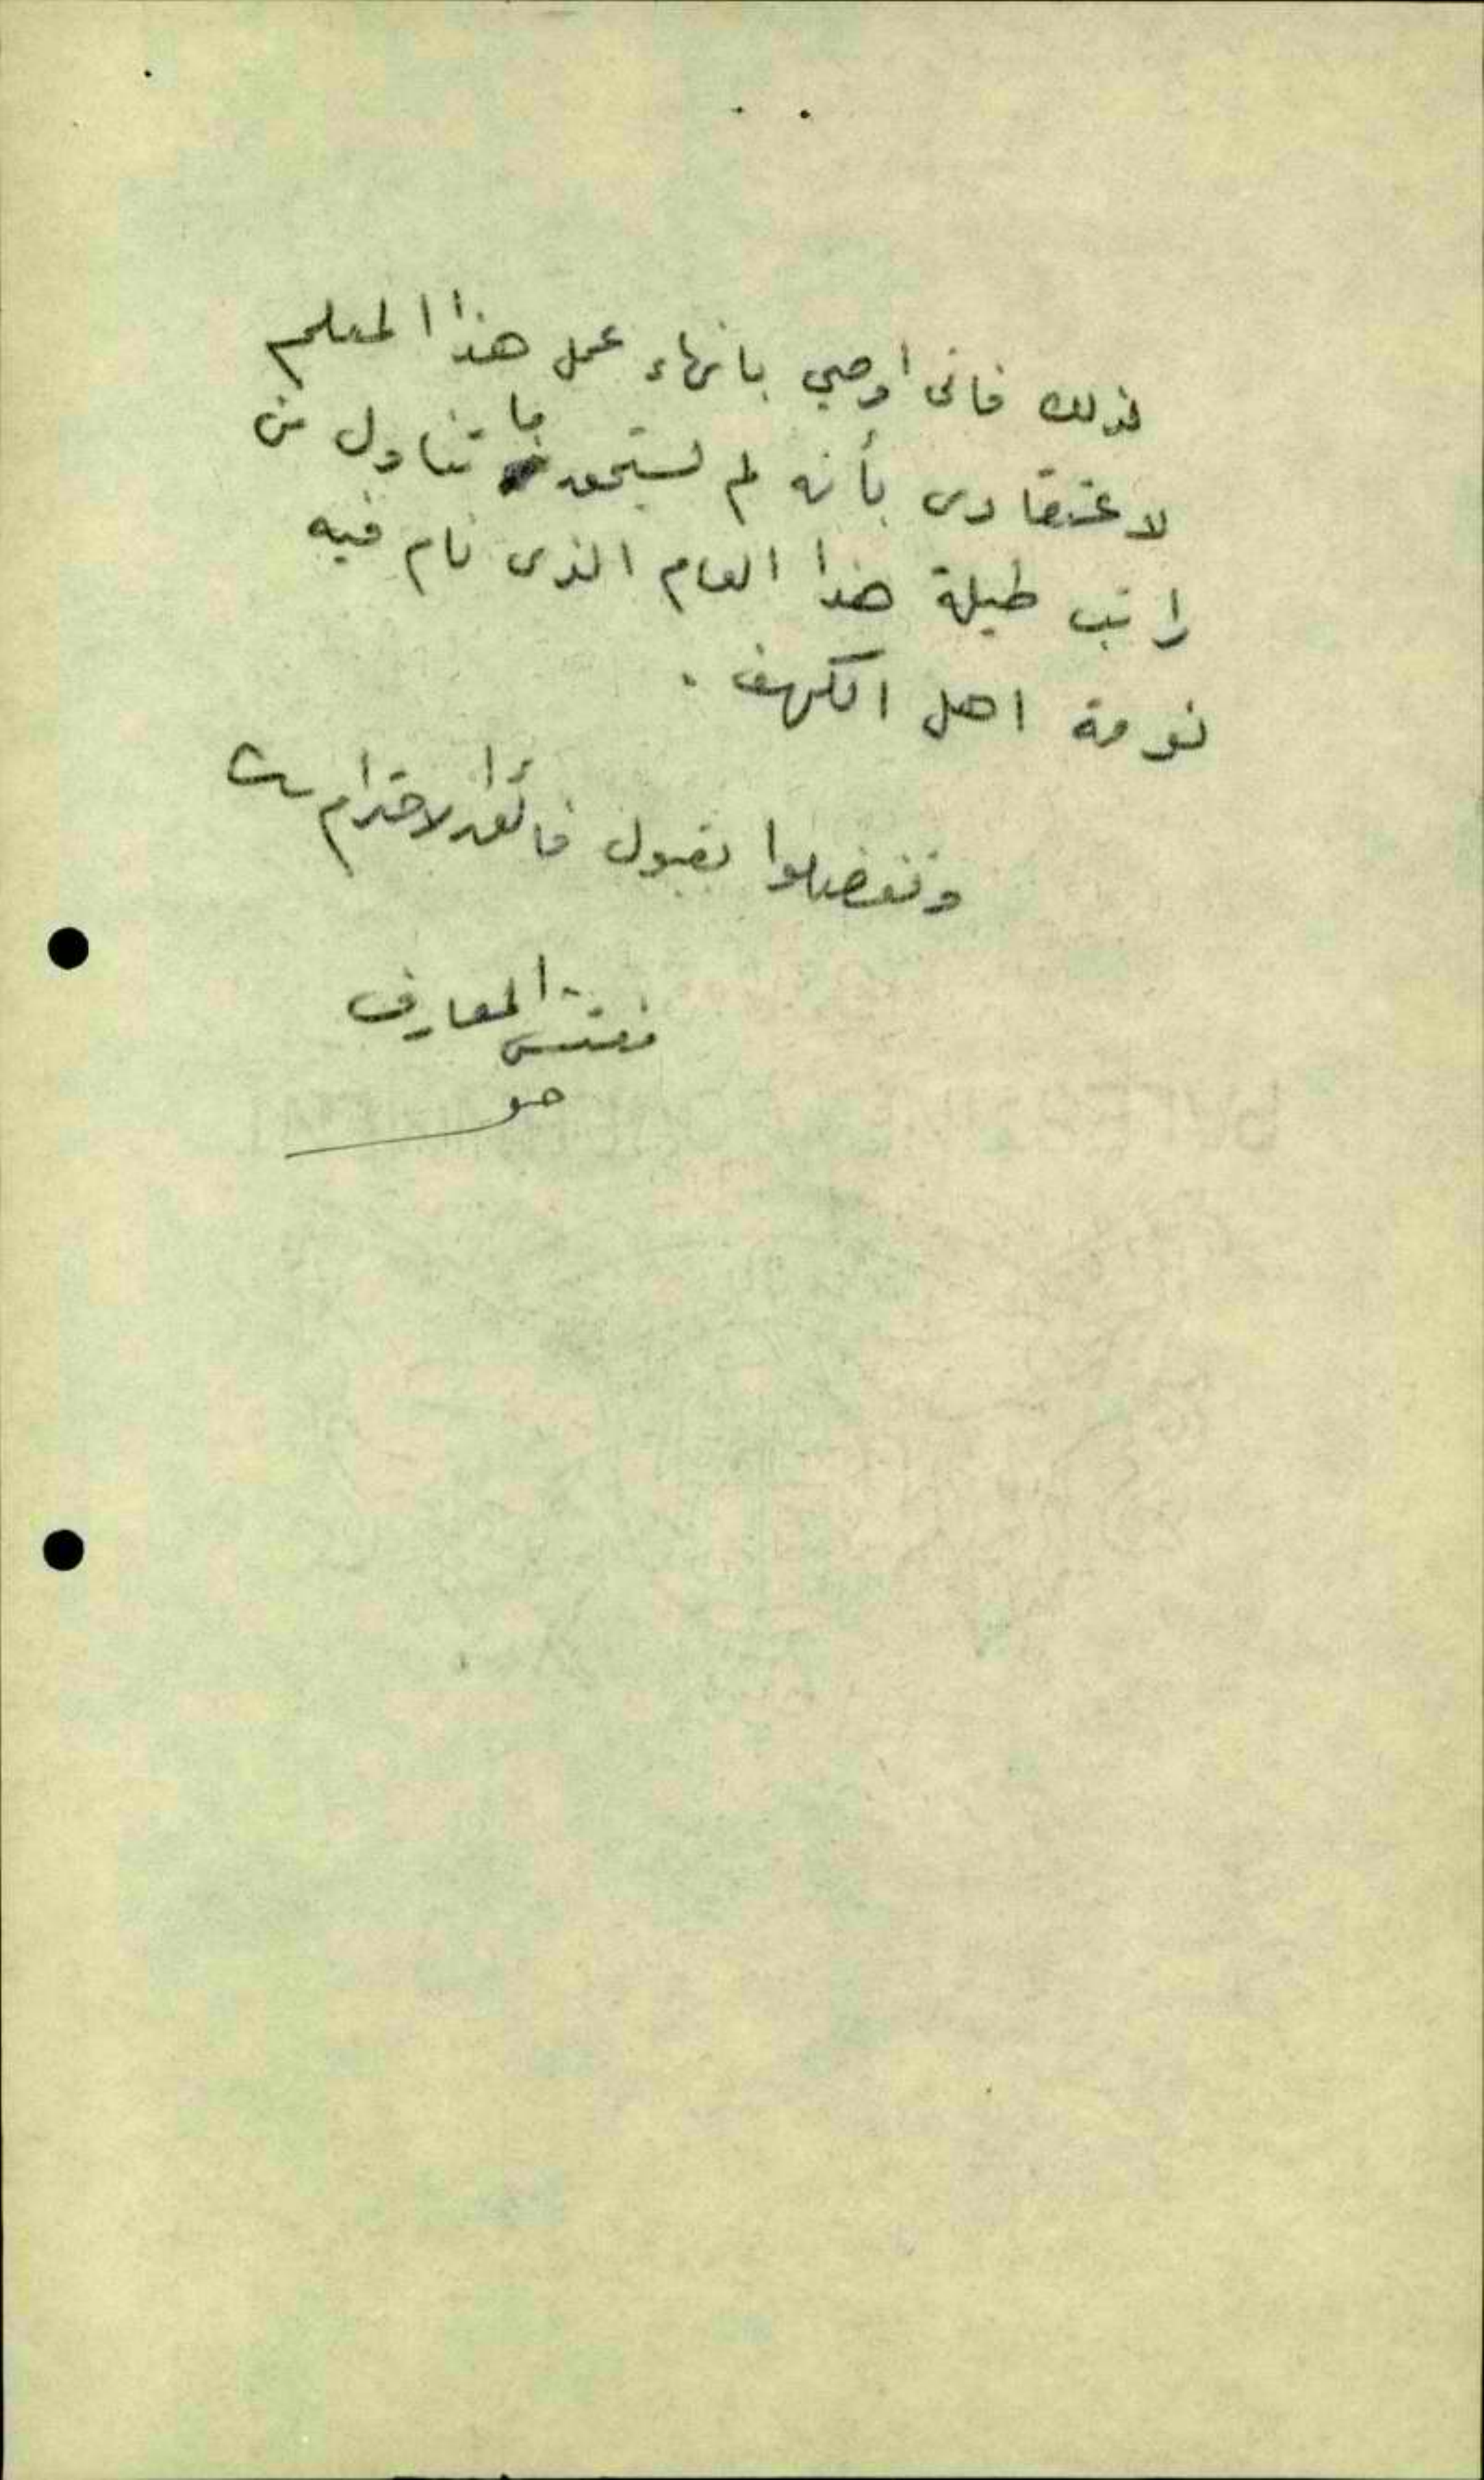 لذلك فانى اوصي بانهاء عمل هذا المعلم
لاعتقادى بأنه لم يستحق ما تناول من
راتب طيلة هذا العام الذى نام فيه
نومة اهل الكهف .
وتفضلوا بقبول فائق الاحترام
مفتش المعارف